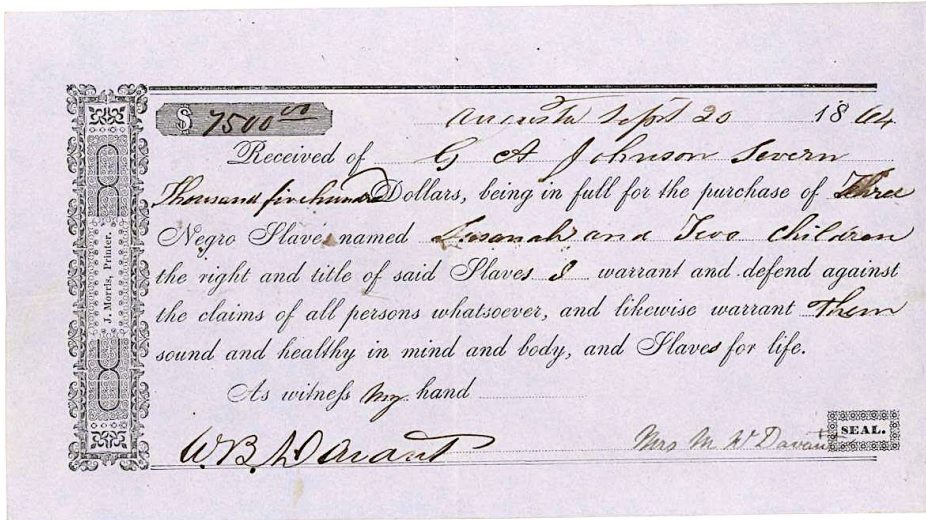 $ 7500 00
Augusta Sept 20 1864
Received of G A Johnson Severn
Thousand five hundred Dollars, being in full for the purchase of Three
Negro Slaves named Susanah and Two Children
the right and title of said Slaves I warrant and defend against
the claims of all persons whatsoever, and likewise warrant Them
sound and healthy in mind and body, and Slaves for life.
As witness my hand
W.B. Davant
Mrs M W Davant
SEAL.
J. Morris, Printer.